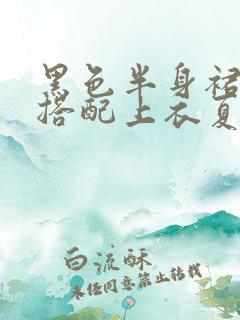 黑色半身裙
搭配上衣夏
白流酥
未经同意禁止转载